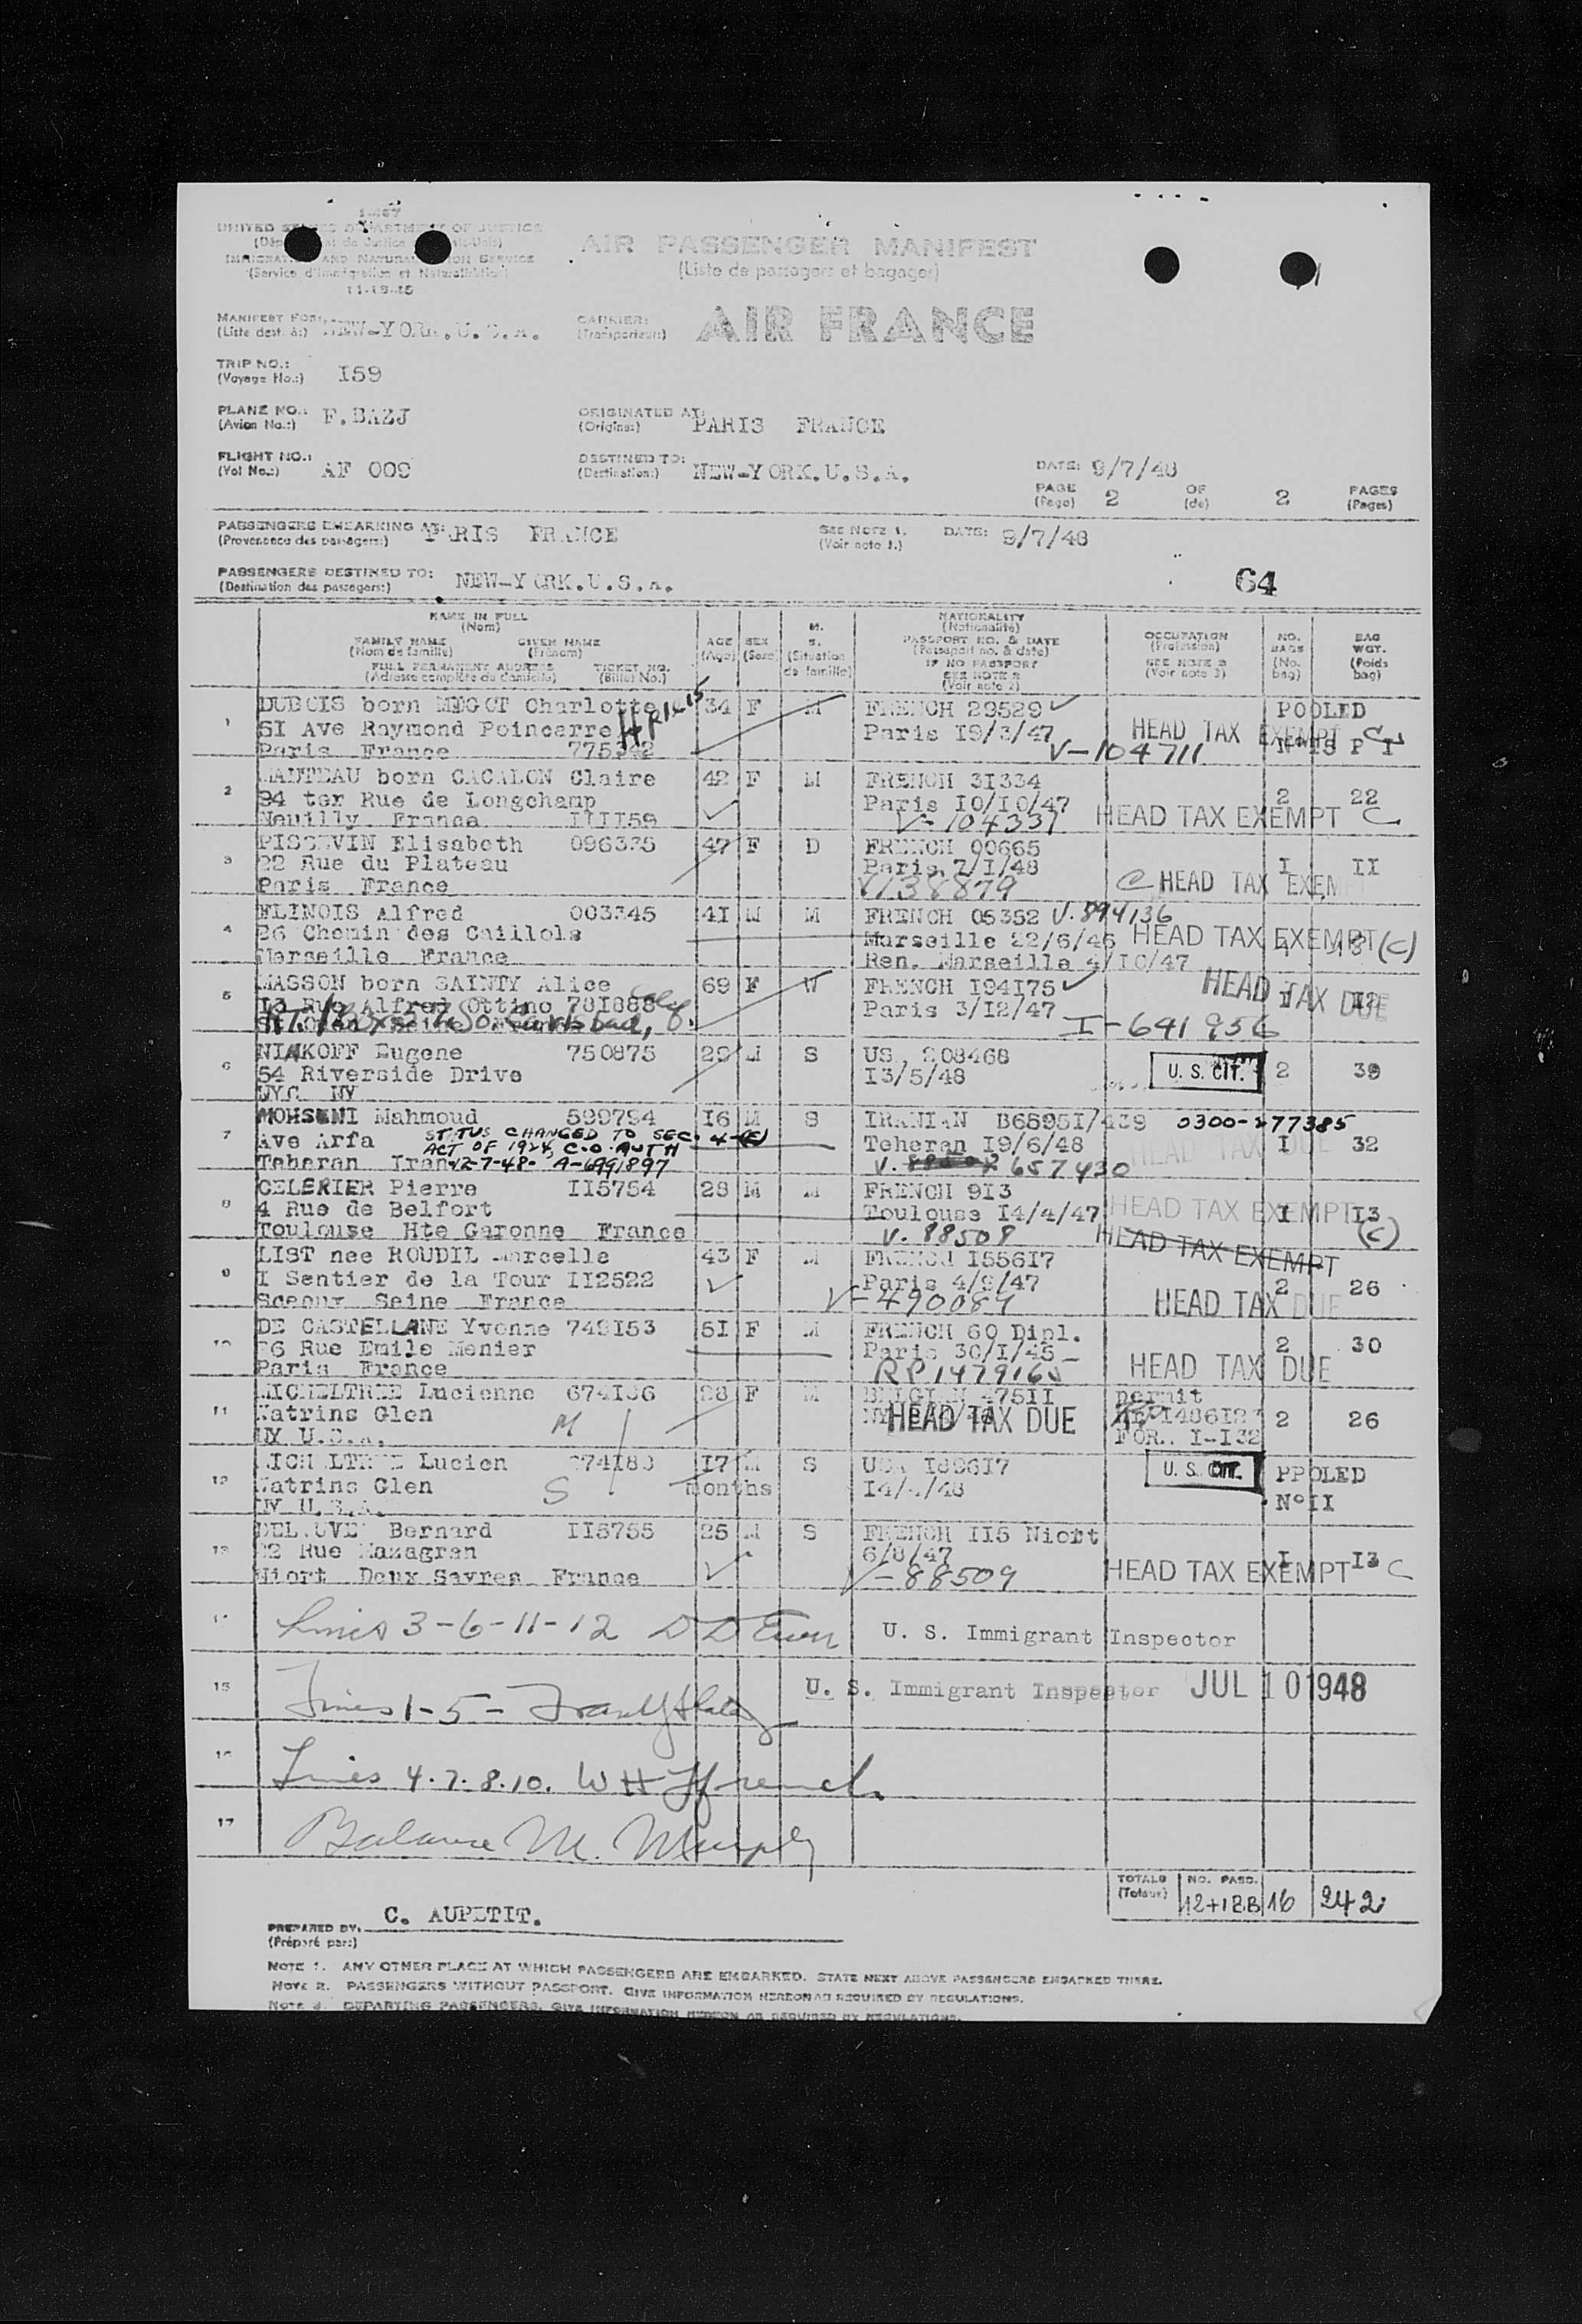 I-467
UNITED STATES DEPARTMENT OF JUSTICE
IMMIGRATION AND NATURALIZATION SERVICE
(Service d'Immigration et Naturalisation)
11-18-45
AIR PASSENGER MANIFEST
(Liste de passagers et bagages)
MANIFEST FOR: NEW-YORK.U.S.A.
(Liste dest. à:)
CARRIER: AIR FRANCE
(Transporteur:)
TRIP NO.: I59
(Voyage No.:)
PLANE NO.: F.BAZJ
(Avion No.:)
ORIGINATED AT: PARIS FRANCE
(Origine:)
FLIGHT NO.: AF 009
(Vol No.:)
DESTINED TO: NEW-YORK.U.S.A.
(Destination:)
DATE: 9/7/48
PAGE 2 OF 2 PAGES
(Page) (de) (Pages)
PASSENGERS EMBARKING AT: PARIS FRANCE
(Provenance des passagers:)
SEE NOTE 1. DATE: 9/7/48
(Voir note 1.)
PASSENGERS DESTINED TO: NEW-YORK.U.S.A.
(Destination des passagers:)
64
NAME IN FULL
(Nom)
FAMILY NAME GIVEN NAME
(Nom de famille) (Prénom)
FULL PERMANENT ADDRESS TICKET NO.
(Adresse complète du domicile) (Billet No.)
AGE
(Age)
SEX
(Sexe)
M.
S.
(Situation
de famille)
NATIONALITY
(Nationalité)
PASSPORT NO. & DATE
(Passeport no. & date)
IF NO PASSPORT
SEE NOTE 2
(Voir note 2)
OCCUPATION
(Profession)
SEE NOTE 3
(Voir note 3)
NO.
BAGS
(No.
bag)
BAG
WGT.
(Poids
bag)
1 DUBOIS born MEGOT Charlotte 34 F M FRENCH 29529 POOLED
5I Ave Raymond Poincarre Paris I9/3/47 HEAD TAX EXEMPT
Paris France 775342 V-104711
2 MAUTEAU born CACALON Claire 42 F M FRENCH 3I334 2 22
94 ter Rue de Longchamp Paris I0/I0/47 HEAD TAX EXEMPT C
Neuilly France IIII59 V-104337
3 PISCEVIN Elisabeth 096335 47 F D FRENCH 00665
22 Rue du Plateau Paris 7/I/48 I II
Paris France V138879 C HEAD TAX EXEM
4 FLINOIS Alfred 003345 4I M M FRENCH 05352 V.894136
26 Chemin des Caillols Marseille 22/6/46 HEAD TAX EXEMPT 1 18 (C)
Marseille France Ren. Marseille 4/I0/47
5 MASSON born SAINTY Alice 69 F W FRENCH I94I75 HEAD TAX DUE
I3 Rue Alfred Ottino 78I888 Paris 3/I2/47
I-641956
6 NIAKOFF Eugene 750875 29 M S US. 208468 U. S. CIT. 2 39
54 Riverside Drive I3/5/48
NYC NY
7 MOHSENI Mahmoud 599794 I6 M S IRANIAN B6595I/439 0300-277385
STATUS CHANGED TO SEC. 4-(E)
Ave Arfa ACT OF 1924, C.O. AUTH Teheran I9/6/48 I 32
Teheran Iran 12-7-48- A-6991897 V. 657430
8 CELERIER Pierre II5754 28 M M FRENCH 9I3
4 Rue de Belfort Toulouse I4/4/47 HEAD TAX EXEMPT I I3
Toulouse Hte Garonne France V. 88508 (C)
HEAD TAX EXEMPT
9 LIST nee ROUDIL Marcelle 43 F M FRENCH I556I7
I Sentier de la Tour II2522 Paris 4/9/47 2 26
Sceaux Seine France V-490089 HEAD TAX DUE
10 DE CASTELLANE Yvonne 749I53 5I F M FRENCH 60 Dipl. 2 30
Rue Emile Menier Paris 30/I/45
Paris France RP1479165 HEAD TAX DUE
11 MICHELTREE Lucienne 674I86 28 F M BELGIAN 475II permit
Watrins Glen M HEAD TAX DUE 2 26
NY U.S.A. FOR. I-I32
12 MICHELTREE Lucien I7 M S USA I896I7 U. S. CIT. PPOLED
Watrins Glen S months I4/4/48
NY U.S.A. N°II
13 Bernard II5755 25 M S FRENCH II5 Niort
22 Rue Mazagran 6/8/47 I I3
Niort Deux Sevres France V-88509 HEAD TAX EXEMPT C
14 Lines 3-6-11-12 U. S. Immigrant Inspector
15 Lines 1-5- U. S. Immigrant Inspector JUL 10 1948
16 Lines 4.7.8.10. W H Ffrench
17 Balance M. Murphy
TOTALS NO. PASS.
(Totaux) 12+1BB 16 242
PREPARED BY. C. AUPETIT.
(Préparé par:)
NOTE 1. ANY OTHER PLACE AT WHICH PASSENGERS ARE EMBARKED. STATE NEXT ABOVE PASSENGERS EMBARKED THERE.
NOTE 2. PASSENGERS WITHOUT PASSPORT. GIVE INFORMATION HEREON AS REQUIRED BY REGULATIONS.
NOTE 3. DEPARTING PASSENGERS. GIVE INFORMATION HEREON AS REQUIRED BY REGULATIONS.